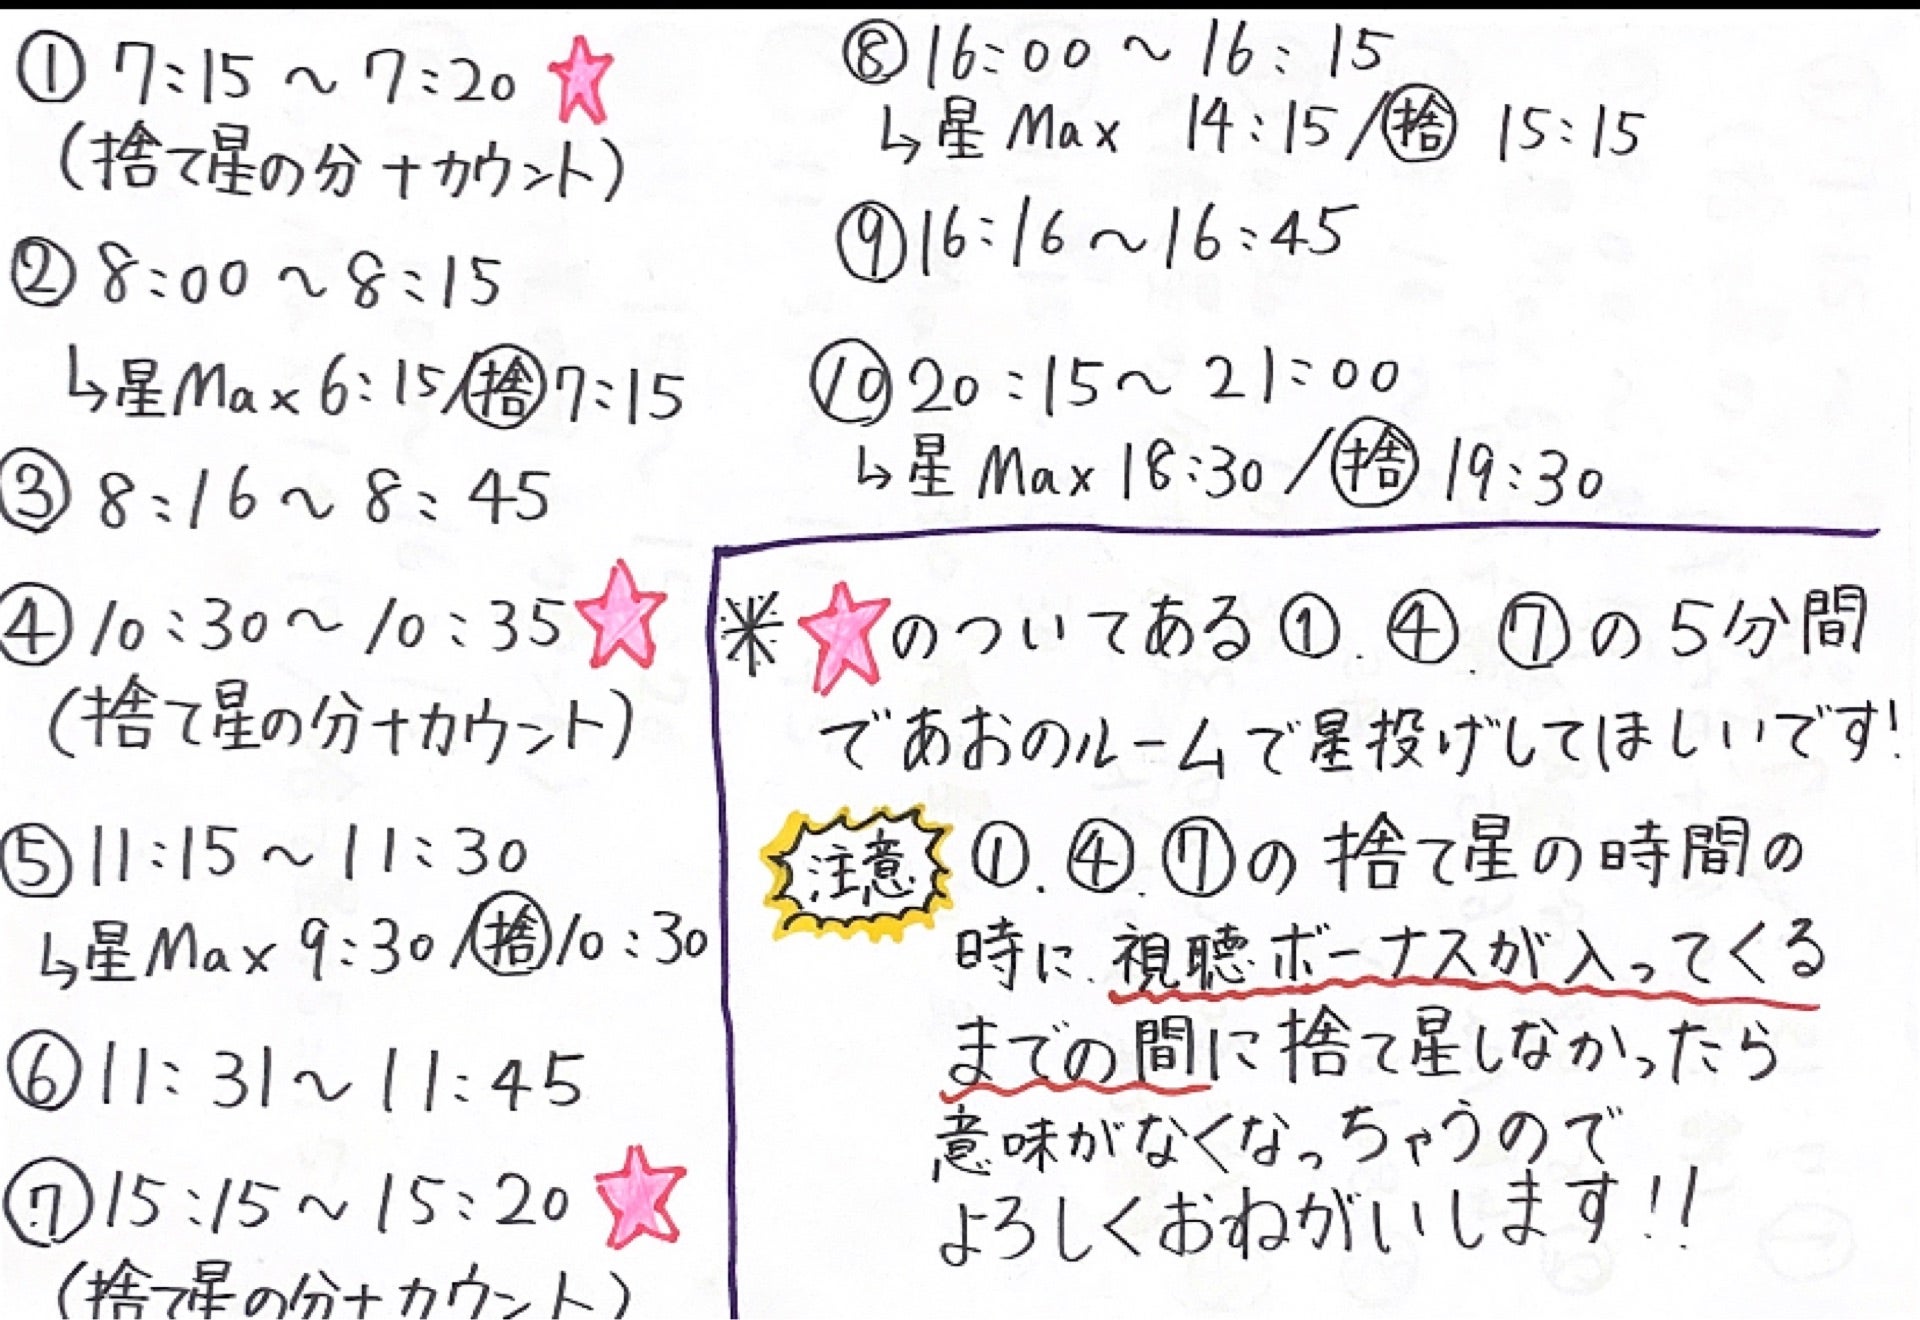 ① 7:15 〜 7:20 ★
(捨て星の分+カウント)
② 8:00 〜 8:15
↳星Max 6:15/捨7:15
③ 8:16 〜 8:45
④ 10:30〜 10:35 ★
(捨て星の分+カウント)
⑤ 11:15 〜 11:30
↳星Max 9:30/捨10:30
⑥ 11:31〜 11:45
⑦ 15:15 〜 15:20 ★
(捨て星の分+カウント)
⑧ 16:00 〜 16:15
↳星Max 14:15/捨 15:15
⑨ 16:16 〜 16:45
⑩ 20:15〜 21:00
↳星Max 18:30/捨 19:30
※★のついてある①.④.⑦の5分間
であおのルームで星投げしてほしいです!
注意 ①.④.⑦の捨て星の時間の
時に.視聴ボーナスが入ってくる
までの間に捨て星しなかったら
意味がなくなっちゃうので
よろしくおねがいします!!